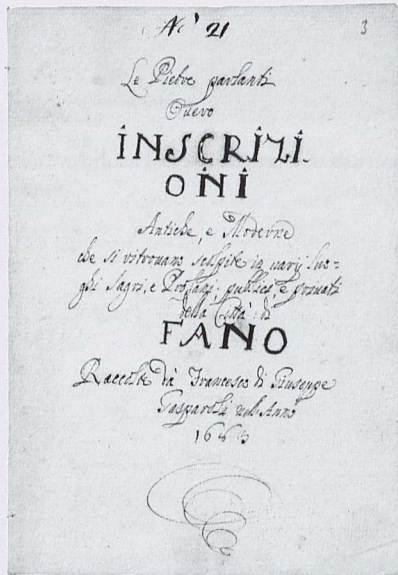 N.º 21
3
Le Pietre parlanti
Overo
INSCRIZI.
ONI
Antiche, e Moderne
che si ritrovano scolpite in varij luo=
ghi Sagri, e Profani, publici, e privati
della Città di
FANO
Raccolte da Francesco di Giuseppe
Gasparoli nell Anno